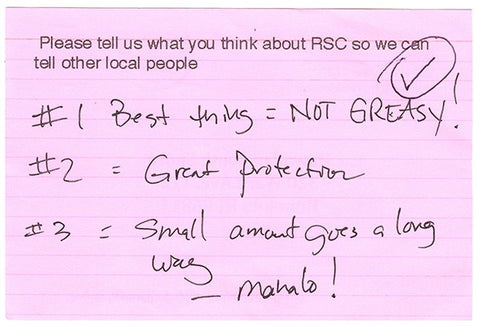 Please tell us what you think about RSC so we can
tell other local people
#1 Best thing = NOT GREASY!
#2 = Great Protection
#3 = Small amount goes a long
way
— mahalo!